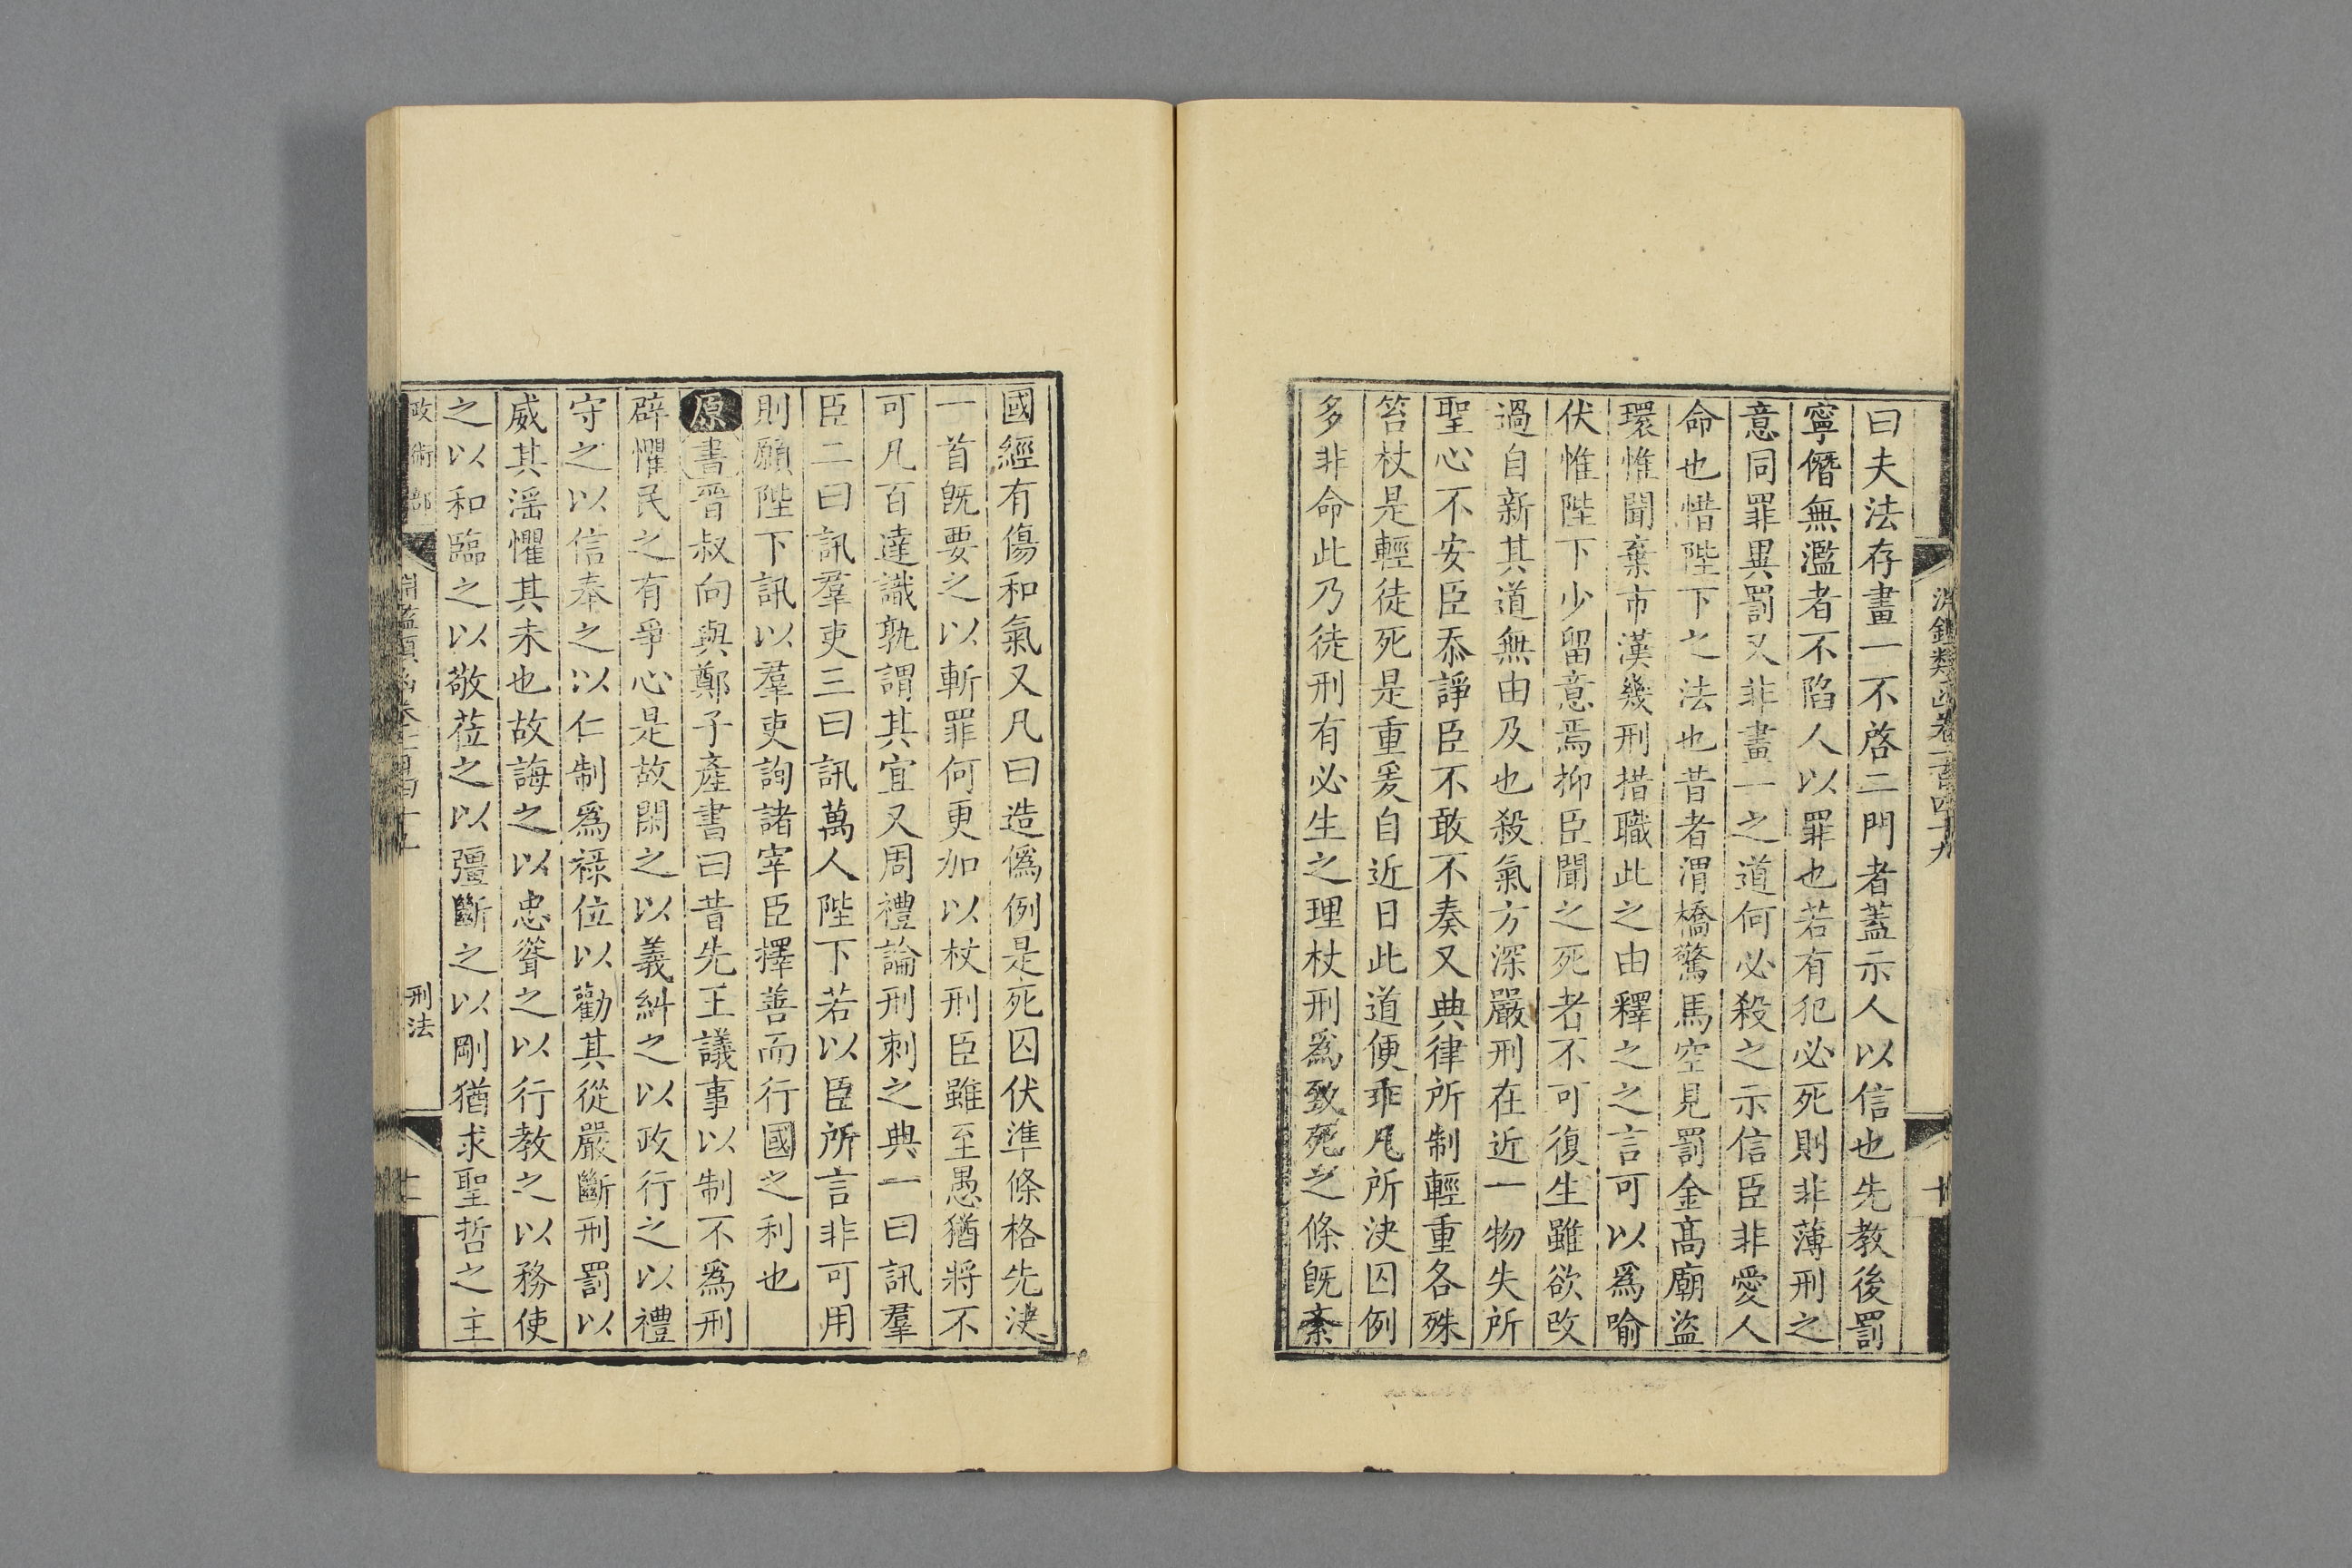 淵鑑類函卷一百四十九
十
曰夫法存畫一不啓二門者蓋示人以信也先教後罰
寧僭無濫者不陷人以罪也若有犯必死則非薄刑之
意同罪異罰又非畫一之道何必殺之示信臣非愛人
命也惜陛下之法也昔者渭橋驚馬空見罰金高廟盜
環惟聞棄市漢幾刑措職此之由釋之之言可以爲喻
伏惟陛下少留意焉抑臣聞之死者不可復生雖欲改
過自新其道無由及也殺氣方深嚴刑在近一物失所
聖心不安臣忝諍臣不敢不奏又典律所制輕重各殊
笞杖是輕徒死是重爰自近日此道便乖凡所決囚例
多非命此乃徒刑有必生之理杖刑爲致死之條旣紊
國經有傷和氣又凡曰造僞例是死囚伏準條格先決
一首旣要之以斬罪何更加以杖刑臣雖至愚猶將不
可凡百達識孰謂其宜又周禮論刑刺之典一曰訊羣
臣二曰訊羣吏三曰訊萬人陛下若以臣所言非可用
則願陛下訊以羣吏詢諸宰臣擇善而行國之利也
原書晉叔向與鄭子產書曰昔先王議事以制不爲刑
辟懼民之有爭心是故閑之以義糾之以政行之以禮
守之以信奉之以仁制爲祿位以勸其從嚴斷刑罰以
威其淫懼其未也故誨之以忠聳之以行教之以務使
之以和臨之以敬莅之以彊斷之以剛猶求聖哲之主
政術部
刑法